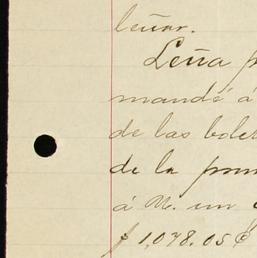 leñar.
Leña p
mandé á
de las bole
de la prim
á M. un
$1,078.05 ¢